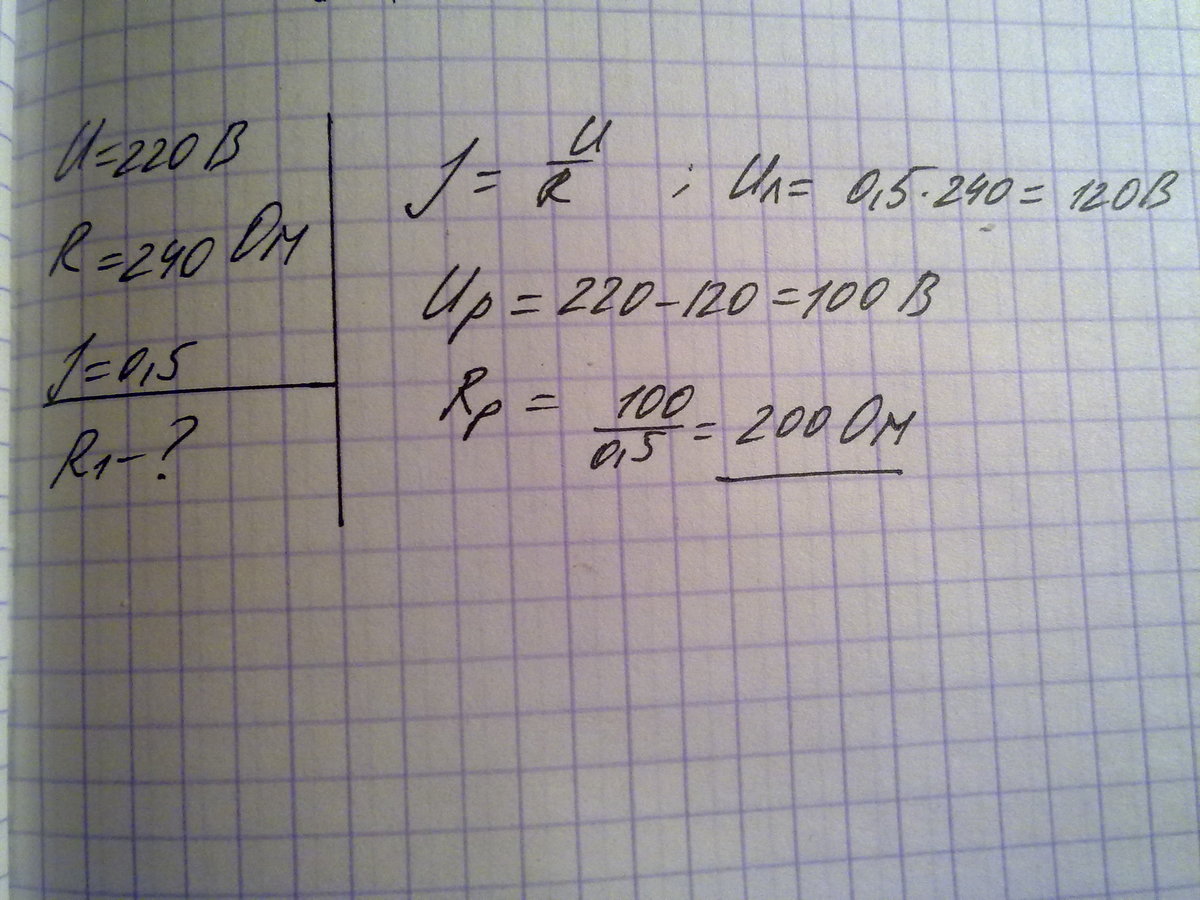 U=220В
R=240 Ом
J=0,5
R1-?
J = U/R ; Uл= 0,5·240= 120В
Uр = 220-120=100 В
Rр = 100/0,5 = 200 Ом